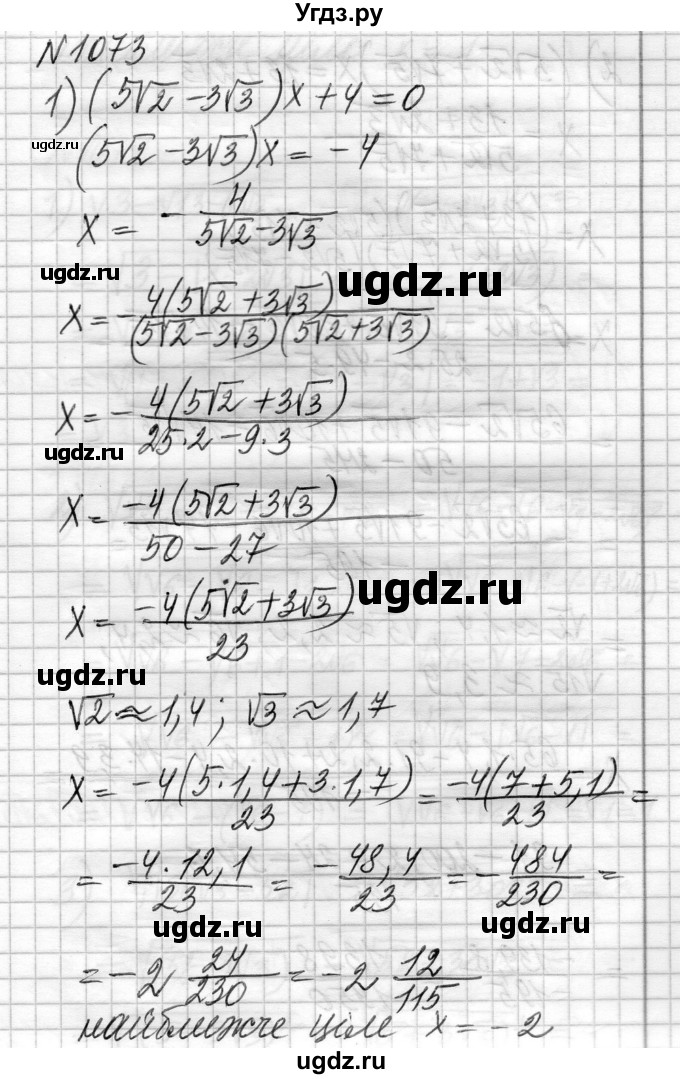 Угдз.ру
N1073
1) (5√2 - 3√3)x + 4 = 0
(5√2 - 3√3)x = -4
ugdz.ru
x = - 4/(5√2 - 3√3)
ugdz.ru
ugdz.ru
x = - 4(5√2 + 3√3)/((5√2 - 3√3)(5√2 + 3√3))
x = - 4(5√2 + 3√3)/(25·2 - 9·3)
ugdz.ru
x = -4(5√2 + 3√3)/(50 - 27)
x = -4(5√2 + 3√3)/23
ugdz.ru
ugdz.ru
√2 ≈ 1,4; √3 ≈ 1,7
x = -4(5·1,4 + 3·1,7)/23 = -4(7 + 5,1)/23 =
= -4·12,1/23 = -48,4/23 = - 484/230 =
ugdz.ru
ugdz.ru
= -2 24/230 = -2 12/115
найближче ціле x = -2
ugdz.ru